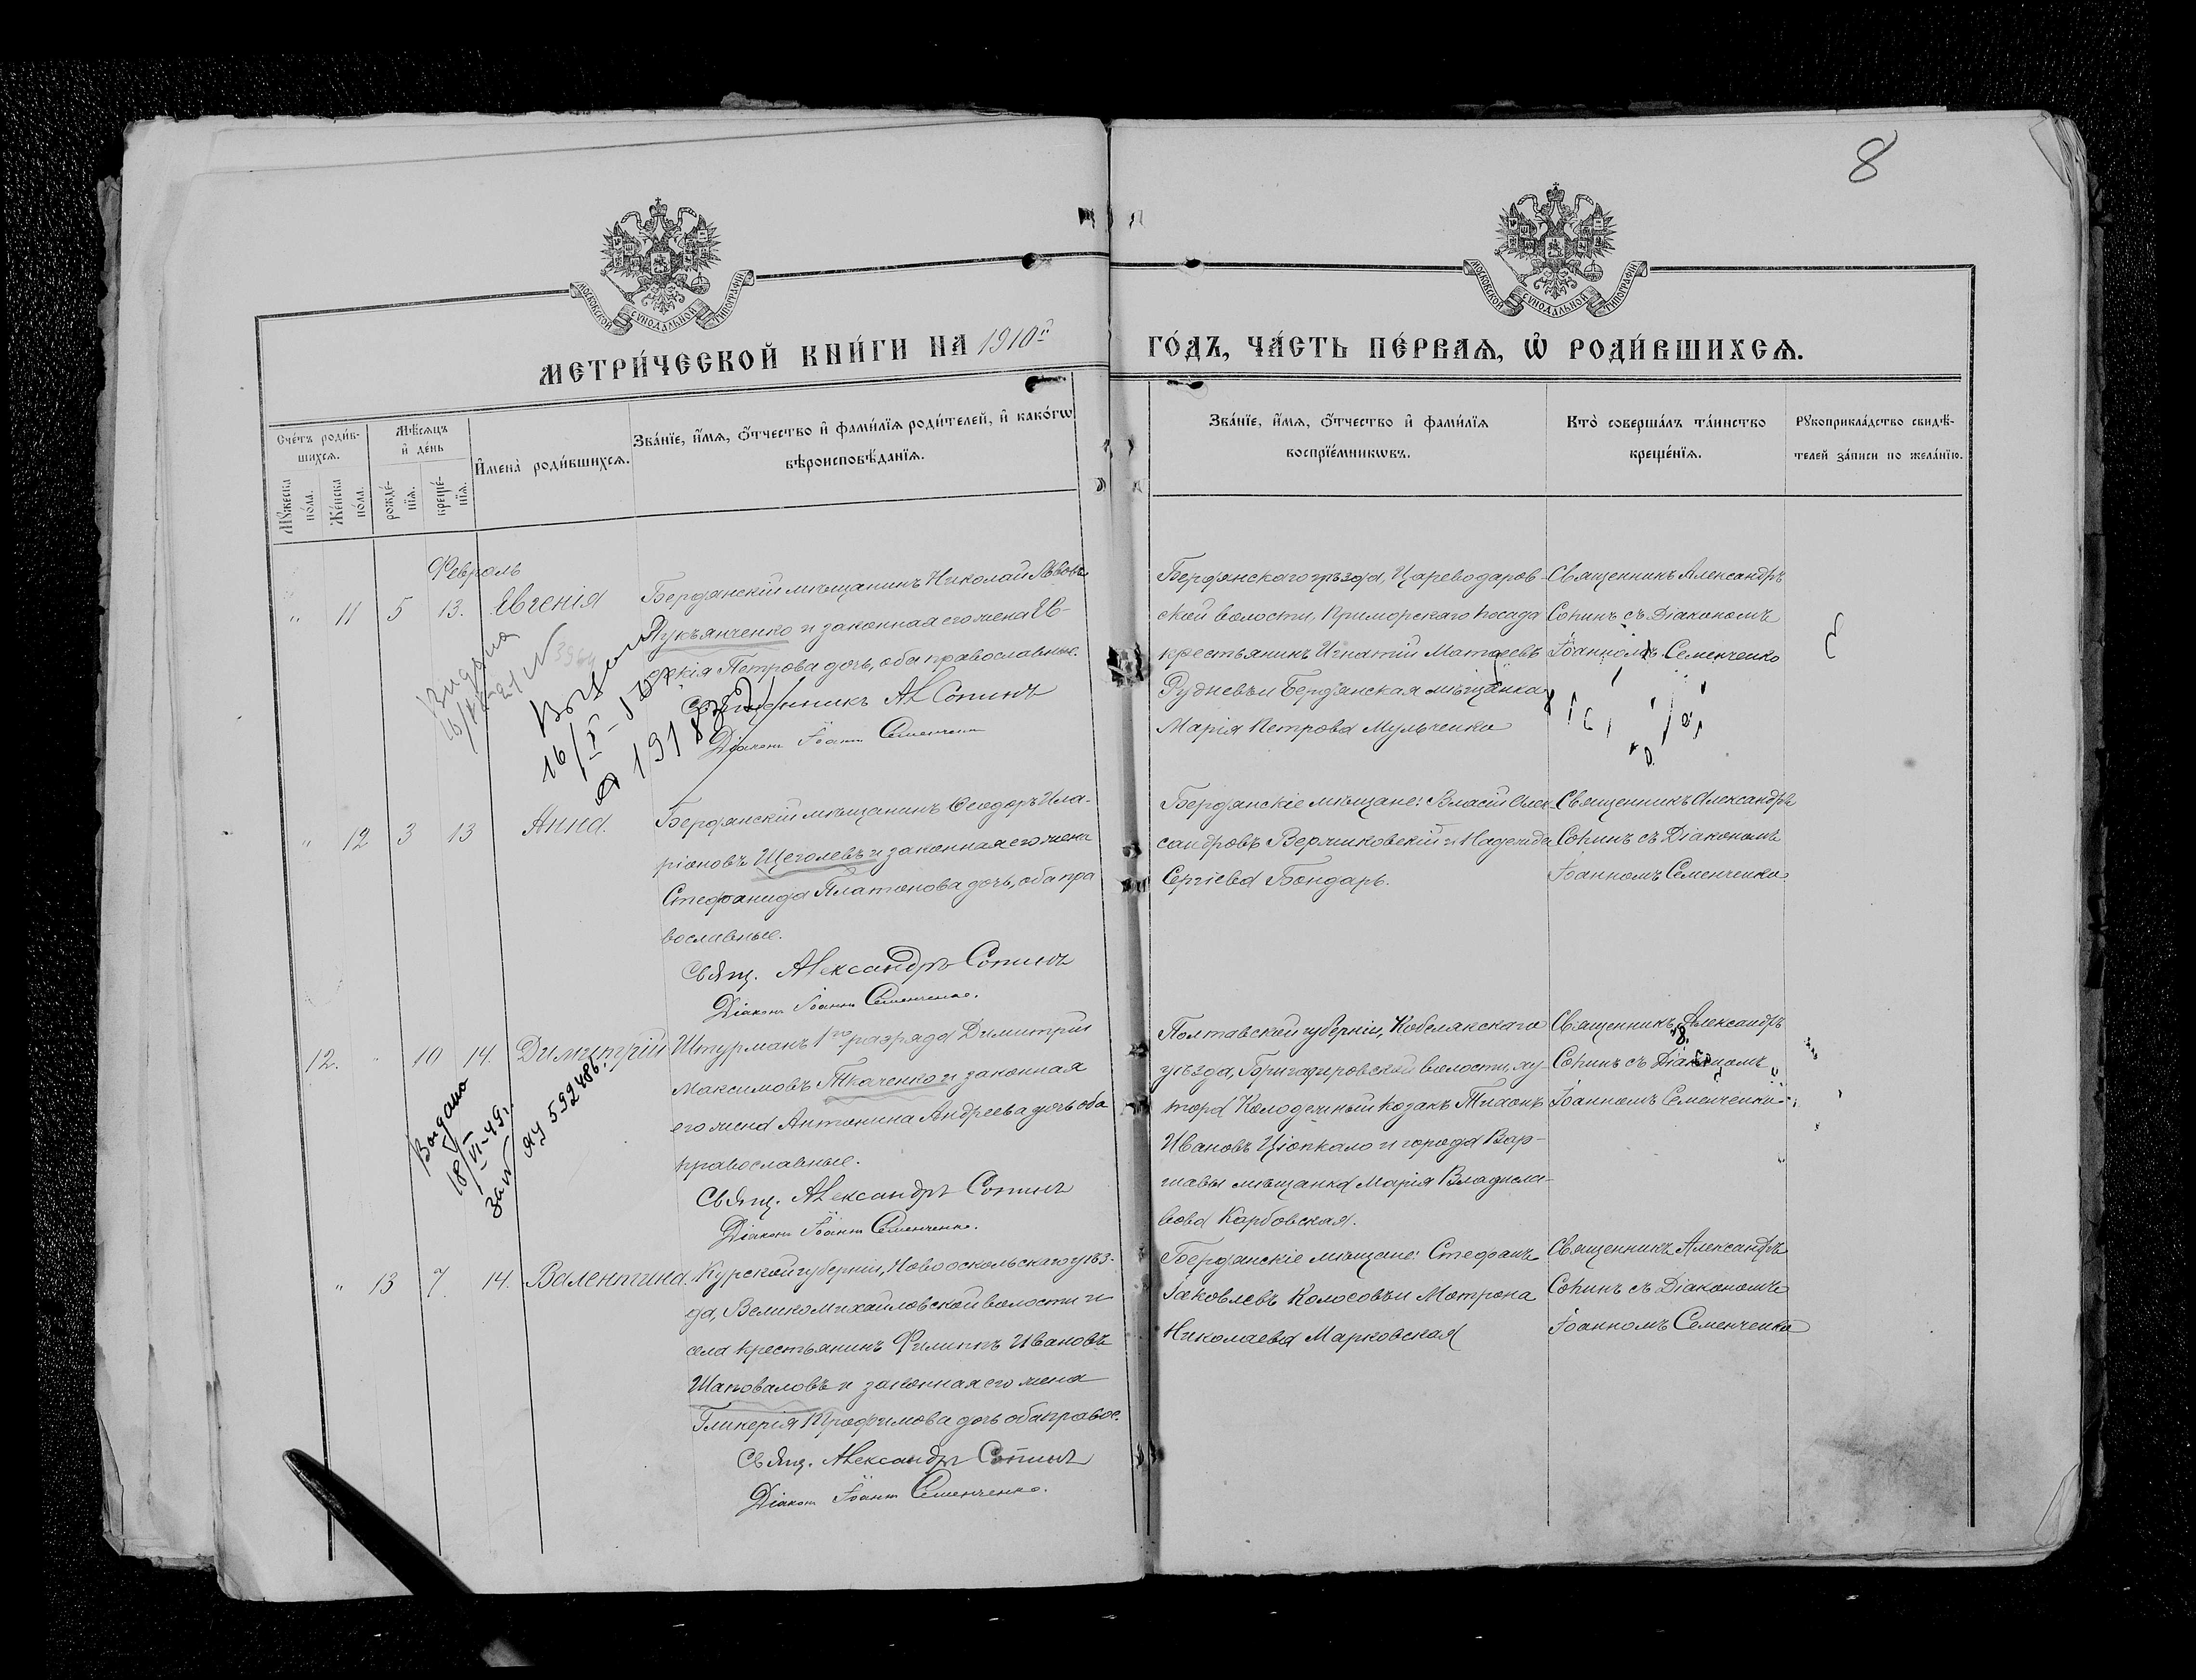 8
МОСКОВСКОЙ СУНОДАЛЬНОЙ ТИПОГРАФІИ
МОСКОВСКОЙ СУНОДАЛЬНОЙ ТИПОГРАФІИ
МЕТРИ́ЧЕСКОЙ КНИ́ГИ НА 1910й
ГО́ДЪ, ЧА́СТЬ ПЕ́РВАѦ, Ѡ҆ РОДИ́ВШИХСѦ.
Сче́тъ роди́в-
шихсѧ.
Мꙋжеска
по́ла.
Же́нска
по́ла.
Мѣ́сѧцъ
и҆ де́нь
рожде́-
нїѧ.
креще́-
нїѧ.
И҆мена̀ роди́вшихсѧ.
Зва́нїе, и҆́мѧ, ѻ҆́тчество и҆ фами́лїѧ роди́телей, и҆ како́гѡ
вѣроисповѣ́данїѧ.
Зва́нїе, и҆́мѧ, ѻ҆́тчество и҆ фами́лїѧ
воспрїе́мникѡвъ.
Кто̀ соверша́лъ та́инство
креще́нїѧ.
Рꙋкоприкла́дство свидѣ́-
телей за́писи по жела́нїю.
Февраль
" 11 5 13. Евгенія
Бердянскій мѣщанинъ Николай Львовъ
Лукьянченко и законная его жена Ев-
Петрова дочь, оба православные.
Священникъ Ал Сопинъ
Діаконъ Іоаннъ Семенченко
Бердянскаго уѣзда, Цареводаров-
ской волости, Приморскаго посада
крестьянинъ Игнатій Матѳеевъ
Рудневъ и Бердянская мѣщанка
Марія Петрова Мульченко
Священникъ Александръ
Сопинъ съ Діакономъ
Іоанномъ Семенченко
Выдана
16/
" 12 3 13 Анна.
Бердянскій мѣщанинъ Ѳеодоръ Ила-
ріоновъ Щеголевъ и законная его жена
Стефанида Платонова дочь, оба пра
вославные.
Свящ. Александръ Сопинъ
Діаконъ Іоаннъ Семенченко.
Бердянскіе мѣщане: Власій Алек
сандровъ Вержиковскій и Надежда
Сергіева Бондарь.
Священникъ Александръ
Сопинъ съ Діакономъ
Іоанномъ Семенченко
12. " 10 14. Димитрій
Штурманъ 1го разряда Димитрій
Максимовъ Ткаченко и законная
его жена Антонина Андреева дочь оба
православные.
Свящ. Александръ Сопинъ
Діаконъ Іоаннъ Семенченко.
Полтавской губерніи, Кобелякскаго
уѣзда, волости, ху-
тора Колодечный козакъ Тихонъ
Ивановъ Цюпкало и города Вар-
шавы мѣщанка Марія Владисла-
вова Карбовская.
Священникъ Александръ
Сопинъ съ Діакономъ
Іоанномъ Семенченко
Выдано
18/VI-49г.
за № 592486.
" 13 7. 14. Валентина.
Курской губерніи, Новооскольскаго уѣз-
да, Великомихайловской волости и
села крестьянинъ Филиппъ Ивановъ
Шаповаловъ и законная его жена
Гликерія Трофимова дочь оба правос.
Свящ. Александръ Сопинъ
Діаконъ Іоаннъ Семенченко.
Бердянскіе мѣщане: Стефанъ
Іаковлевъ Колосовъ и Матрона
Николаева Марковская
Священникъ Александръ
Сопинъ съ Діакономъ
Іоанномъ Семенченко